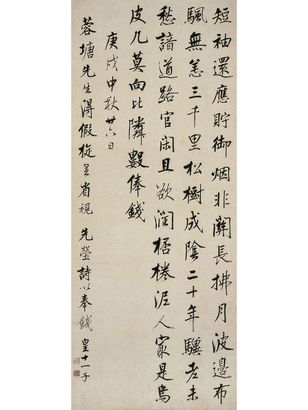 短袖還應貯御烟非關長拂月波邊布
颿無恙三千里松樹成陰二十年驥老未
愁諳道路官閑且欲潤桮棬泥人家是烏
皮几莫向比隣數俸錢
庚戌中秋廿六日
蓉塘先生得假旋里省視 先塋詩以奉餞 皇十一子